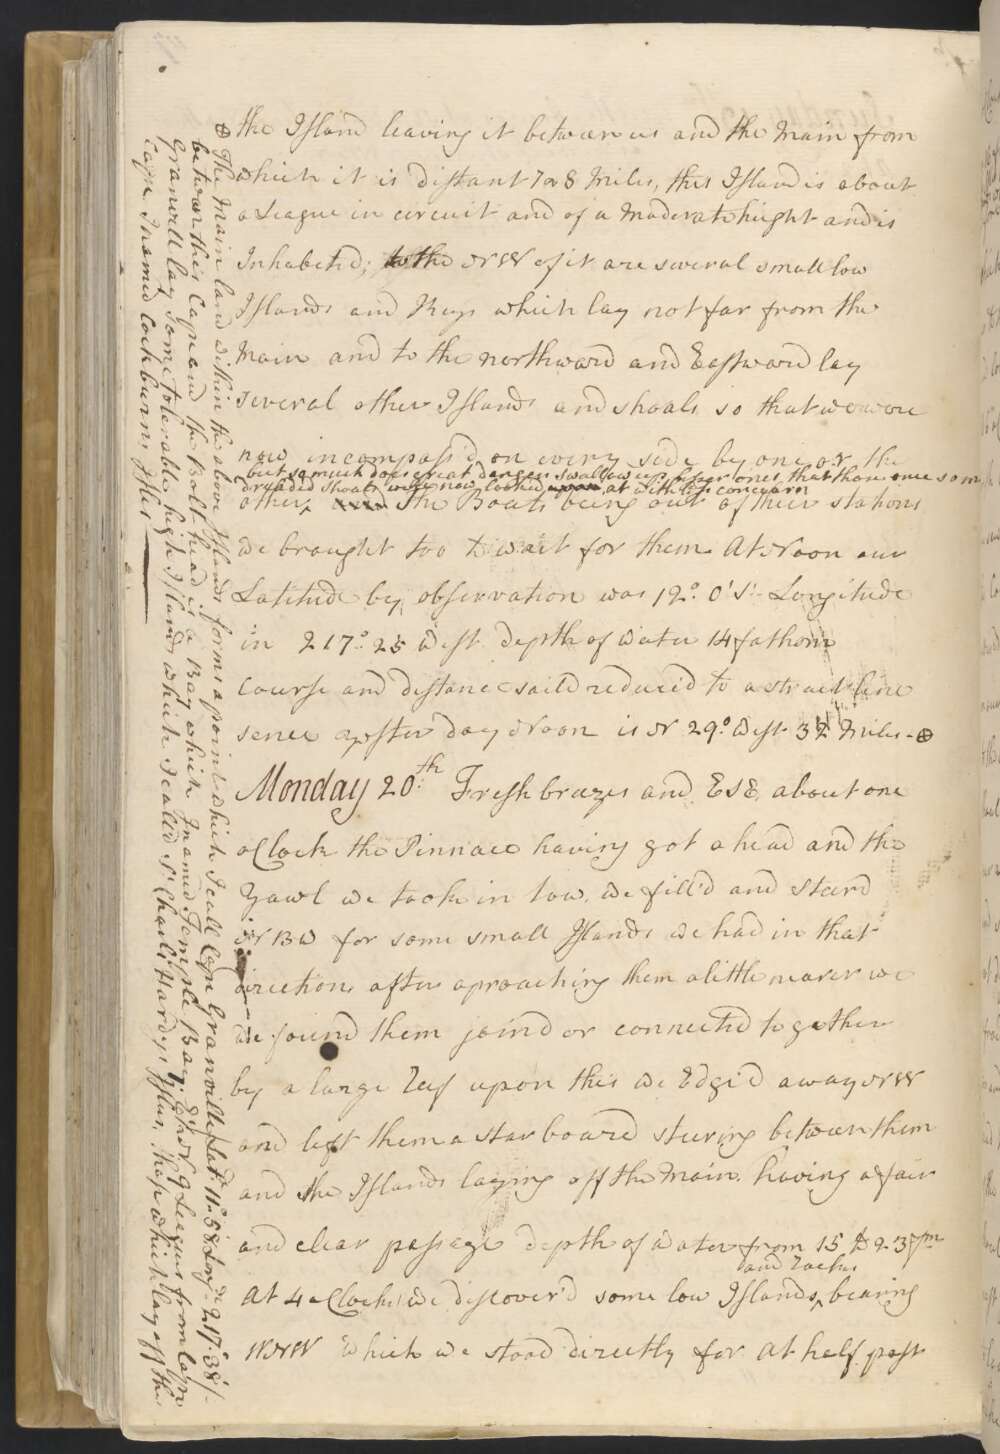 the Island leaving it between us and the Main from
which it is distant 7 or 8 Miles, this Island is about
a League in circuit and of a Moderate hight and is
Inhabited; to the NW of it are several small low
Islands and Keys which lay not far from the
Main and to the northward and Eastward lay
several other Islands and shoals so that we were
now incompass'd on every side by one or the
but so much does great danger swallow up lesser ones that those once so m
dreaded shoals were now looked upon at with less concern
other, and The Boats being out of their stations
we brought too to wait for them. At Noon our
Latitude by observation was 12° 0' S:- Longitude
in 217° 25 West depth of water 14 fathom
Course and distance saild reduced to a strait line
sence yesterday Noon is N 29° West 32 Miles - ⊕
Monday 20th. Fresh brazes and ESE, about one
oClock the Pinnace having got a head and the
Yawl we took in tow. we fill'd and steerd
NBW for some small Islands we had in that
direction, after aproaching them a little nearer we
we found them joind or connected together
by a large Reef upon this we Edge'd away NW
and left them a starboard steering between them
and the Islands laying off the Main. having a fair
and clear passage depth of Water from 15 to 9 fm
and Rocks
At 4 oClock we discover'd some low Islands, bearing
WNW which we stood directly for at half past
⊕ The Main land within the above Islands forms a point which I call Cape Granville, Latd. 11°..58 Longde. 217°.38'/-
between this Cape and the Bolt head is a Bay which I named Temple Bay. E½N 9 Leagues from Cape
Granvill lay some tolerable high Islands which I call'd Sr. Charles Hardys Isles, those which lay off the
Cape I named Cockburns Isles